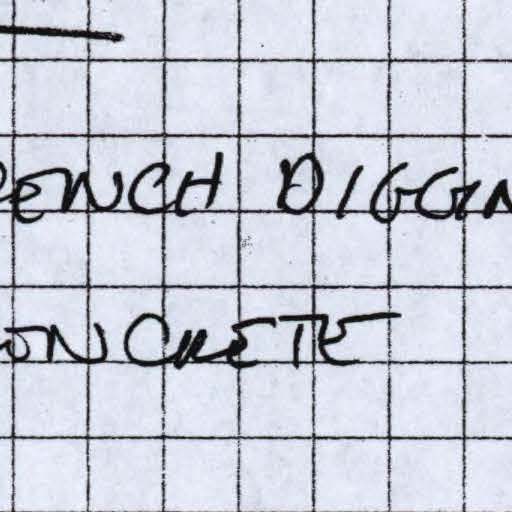 RENCH DIGGIN
ONCRETE